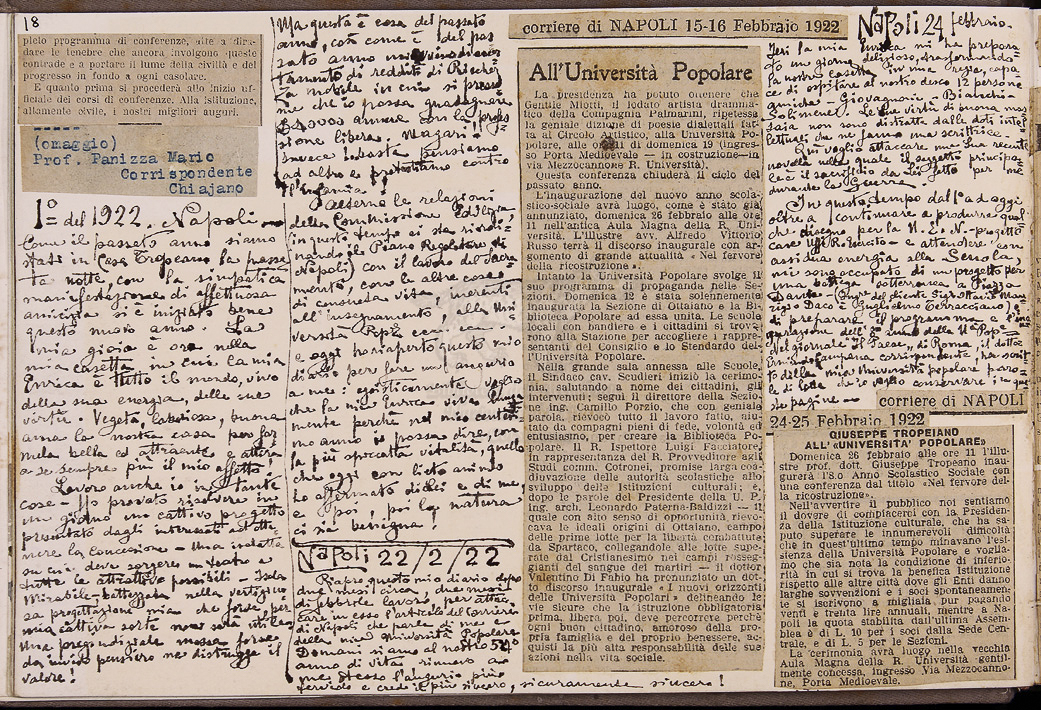 18
pleto programma di conferenze, atte a dira-
dare le tenebre che ancora involgono queste
contrade e a portare il lume della civiltà e del
progresso in fondo a ogni casolare.
E quanto prima si procederà allo inizio uf-
ficiale dei corsi di conferenze. Alla istituzione,
altamente civile, i nostri migliori auguri.
(omaggio)
Prof. Panizza Mario
Corrispondente
Chiajano
1° del 1922. Napoli
Come il passato anno siamo
stati in Casa Tropeano la passa
ta notte, con la simpatica
manifestazione di affettuosa
amicizia si è iniziato bene
questo nuovo anno. La
mia gioia è ora nella
mia casetta in cui la mia
Enrica è tutto il mondo, vivo
della sua energia, delle sue
virtù. Vegeta, laboriosa, buona
ama la nostra casa per far
mela bella ed attraente e attira
a se sempre più il mio affetto!
Lavoro anche io in tante
cose - Ho provato risolvere in
un giorno un cattivo progetto
presentato dagli interessati ad otte
nere la concessione - Una isoletta
su cui deve sorgere un teatro e
tutte le attrattive possibili - Isola
Mirabile - battezzata nella vertiginosa
progettazione mia che forse, per
mia cattiva sorte non sarà
Una pregiudiziale mossa forse
da invido pensiero ne distrugge il
valore!
Ma questa è cosa del passato
anno, così come è del pas
sato anno
tamento di reddito di Ricchez
za mobile in cui si presu
me che io possa guadagnare
annue con la profes
sione libera. Magari!
Invece pensiamo
ad altro e protestiamo contro
l'
le relazioni
della Commissione Edilizia,
in questo tempo si sta riordi
nando il Piano Regolatore di
Napoli) con il lavoro del Sacra
mento, con le altre cose
di consueta vita inerenti
all'insegnamento, alla Uni
versità Pop.
e oggi ho riaperto questo mio
diario per fare un augurio
a me: egoisticamente voglio
che la mia Enrica viva lunga
mente perché nel mio centesi
mo anno io possa dire, con
la più spiccata vitalità, quello
che oggi con lieto animo
ho affermato di lei e di me
e poi, poi la natura
ci sia benigna!
Napoli 22/2/22
Riapro questo mio diario dopo
due mesi circa, due mesi
di febbrile lavoro, per attac
care in esso l'articolo del Corriere
di Napoli che parla di me e
della mia Università Popolare
Domani siamo al nostro 52°
anno di vita, rinnovo a
me stesso l'augurio, più
fervido e credo il più sincero, sicuramente sincero!
corriere di NAPOLI 15-16 Febbraio 1922
All'Università Popolare
La presidenza ha potuto ottenere che
Gentile Miotti, il lodato artista dramma-
tico della Compagnia Palmarini, ripetessa
la geniale dizione di poesie dialettali fat-
ta al Circolo Artistico, alla Università Po-
polare, alle ore 11 di domenica 19 (ingres-
so Porta Medioevale — in costruzione—in
via Mezzocannone R. Università).
Questa conferenza chiuderà il ciclo del
passato anno.
L'inaugurazione del nuovo anno scola-
stico-sociale avrà luogo, come è stato già
annunziato, domenica 26 febbraio alle ore
11 nell'antica Aula Magna della R. Uni-
versità. L'illustre avv. Alfredo Vittorio
Russo terrà il discorso inaugurale con ar-
gomento di grande attualità « Nel fervore
della ricostruzione ».
Intanto la Università Popolare svolge il
suo programma di propaganda nelle Se-
zioni. Domenica 12 è stata solennemente
inaugurata la Sezione di Ottaiano e la Bi-
blioteca Popolare ad essa unita. Le scuole
locali con bandiere e i cittadini si trova-
rono alla Stazione per accogliere i rappre-
sentanti del Consiglio e lo Stendardo del-
l'Università Popolare.
Nella grande sala annessa alle Scuole,
il Sindaco cav. Scudieri iniziò la cerimo-
nia, salutando a nome dei cittadini, gli
intervenuti; seguì il direttore della Sezio-
ne ing. Camillo Porzio, che con geniale
parola, rievocò tutto il lavoro fatto, aiu-
tato da compagni pieni di fede, volontà ed
entusiasmo, per creare la Biblioteca Po-
polare. Il R. Ispettore Luigi Facciatore
in rappresentanza del R. Provveditore agli
Studi comm. Cotronei, promise larga coa-
diuvazione delle autorità scolastiche allo
sviluppo delle Istituzioni culturali; e,
dopo le parole del Presidente della U. P.
ing. arch. Leonardo Paterna-Baldizzi — il
quale con alto senso di opportunità rievo-
cava le ideali origini di Ottaiano, campo
delle prime lotte per la libertà combattute
da Spartaco, collegandole alle lotte supe-
rate dal Cristianesimo nei campi rosseg-
gianti del sangue dei martiri — il dottor
Valentino Di Fabio ha pronunziato un dot-
to discorso inaugurale « I nuovi orizzonti
delle Università Popolari » delineando le
vie sicure che la istruzione obbligatoria
prima, libera, poi, deve percorrere perchè
ogni buon cittadino, amoroso della pro-
pria famiglia e del proprio benessere, ac-
quisti la più alta responsabilità delle sue
azioni nella vita sociale.
Napoli 24 febbraio.
Ieri la mia Enrica mi ha prepara
to un giorno delizioso, trasformando
la nostra casetta in una reggia, capa
ce di ospitare al nostro desco 12 persone
amiche - Giovannoni - Bianchi -
Solimene. Le sue virtù di buona mas
saia non sono distratte dalle doti intel
lettuali che ne fanno una scrittrice.
Qui voglio attaccare una sua recente
novella nella quale il soggetto principa
le è il sacrificio da Lei fatto per me
durante la Guerra.
In questo tempo dal 1° ad oggi
oltre a continuare a produrre qual
che disegno per la U. E. N. - progetto
case Uff. R. Esercito - e attendere con
assidua energia alla Scuola,
mi sono occupato di un progetto per
una bottega sotterranea a Piazza
Dante
di preparare il programma e l'inau
gurazione dell'8° anno della U. Pope-
del giornale Il Paese, di Roma, il dottor
Emidio Campana corrispondente, ha scrit
to della mia Università Popolare paro-
le di lode che io voglio conservare in que
ste pagine -
corriere di NAPOLI
24-25 Febbraio 1922
GIUSEPPE TROPEIANO
ALL'«UNIVERSITA' POPOLARE»
Domenica 26 febbraio alle ore 11 l'illu-
stre prof. dott. Giuseppe Tropeano inau-
gurerà l'8.o Anno Scolastico Sociale con
una conferenza dal titolo «Nel fervore del-
la ricostruzione».
Nell'avvertire il pubblico noi sentiamo
il dovere di compiacerci con la Presiden-
za della Istituzione culturale, che ha sa-
puto superare le innumerevoli difficoltà
che in quest'ultimo tempo minavano l'esi-
stenza della Università Popolare e voglia-
mo che sia nota la condizione di inferio-
rità in cui si trova la benefica Istituzione
rispetto alle altre città dove gli Enti danno
larghe sovvenzioni e i soci spontaneamen-
te si iscrivono a migliaia, pur pagando
venti e trenta lire annuali, mentre a Na-
poli la quota stabilita dall'ultima Assem-
blea è di L. 10 per i soci dalla Sede Cen-
trale, e di L. 5 per le Sezioni.
La cerimonia avrà luogo nella vecchia
Aula Magna della R. Università gentil-
mente concessa, ingresso Via Mezzocanno-
ne, Porta Medioevale.